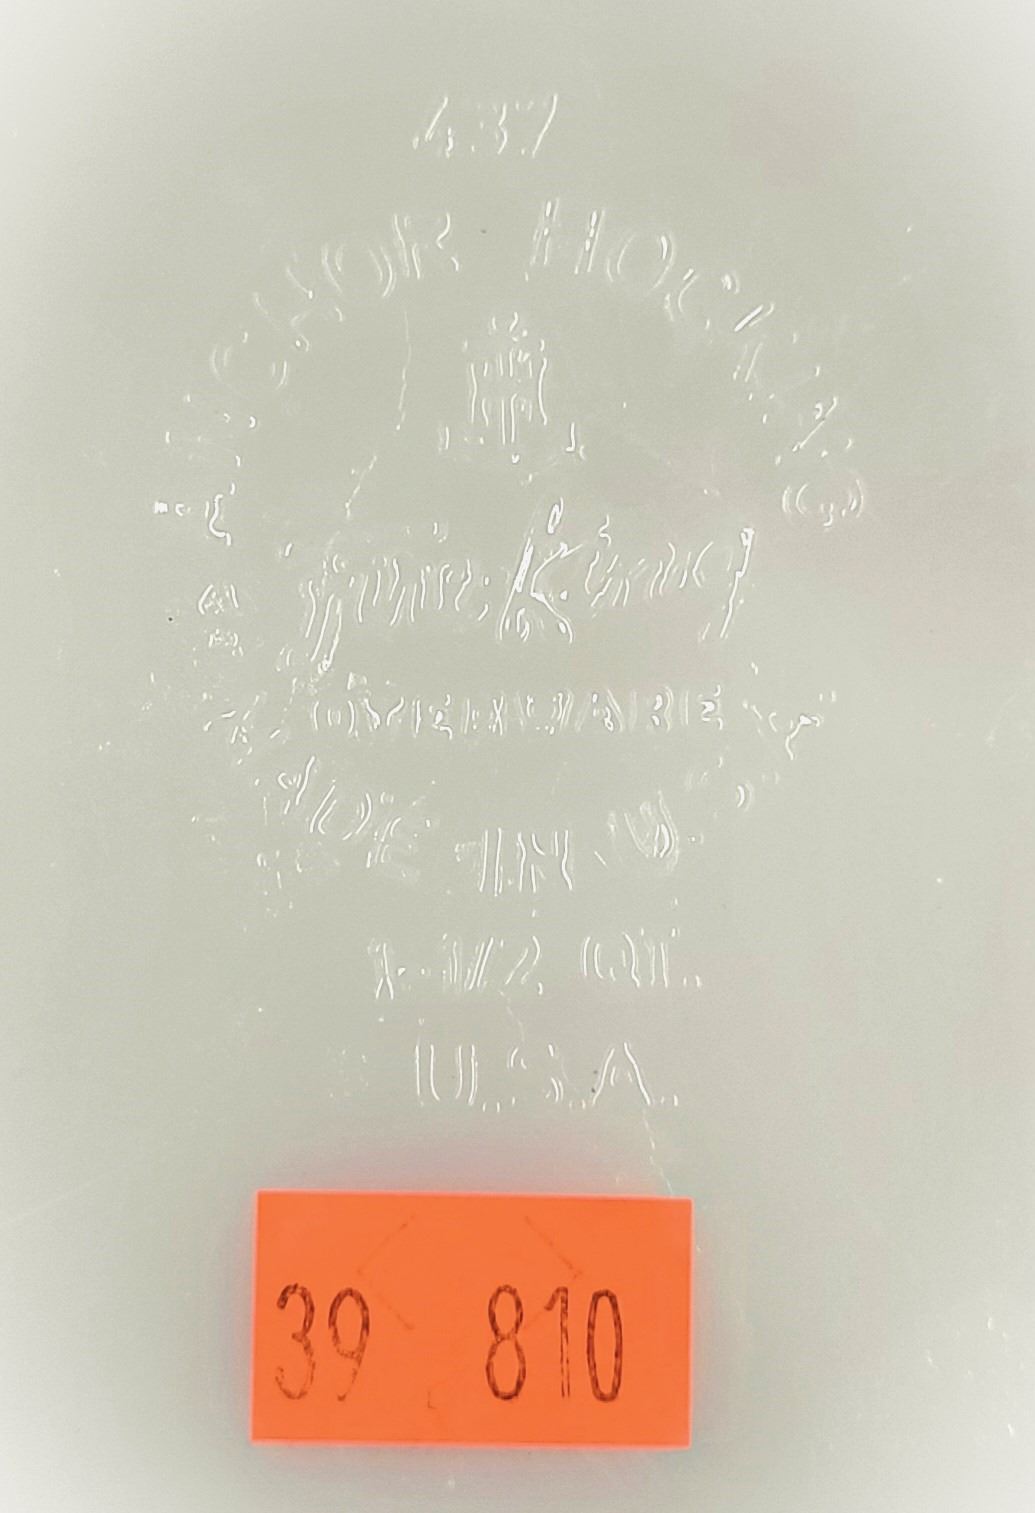 437
ANCHOR HOCKING
Fire-King
OVENWARE
MADE IN U.S.A.
1-1/2 QT.
U.S.A.
39 810